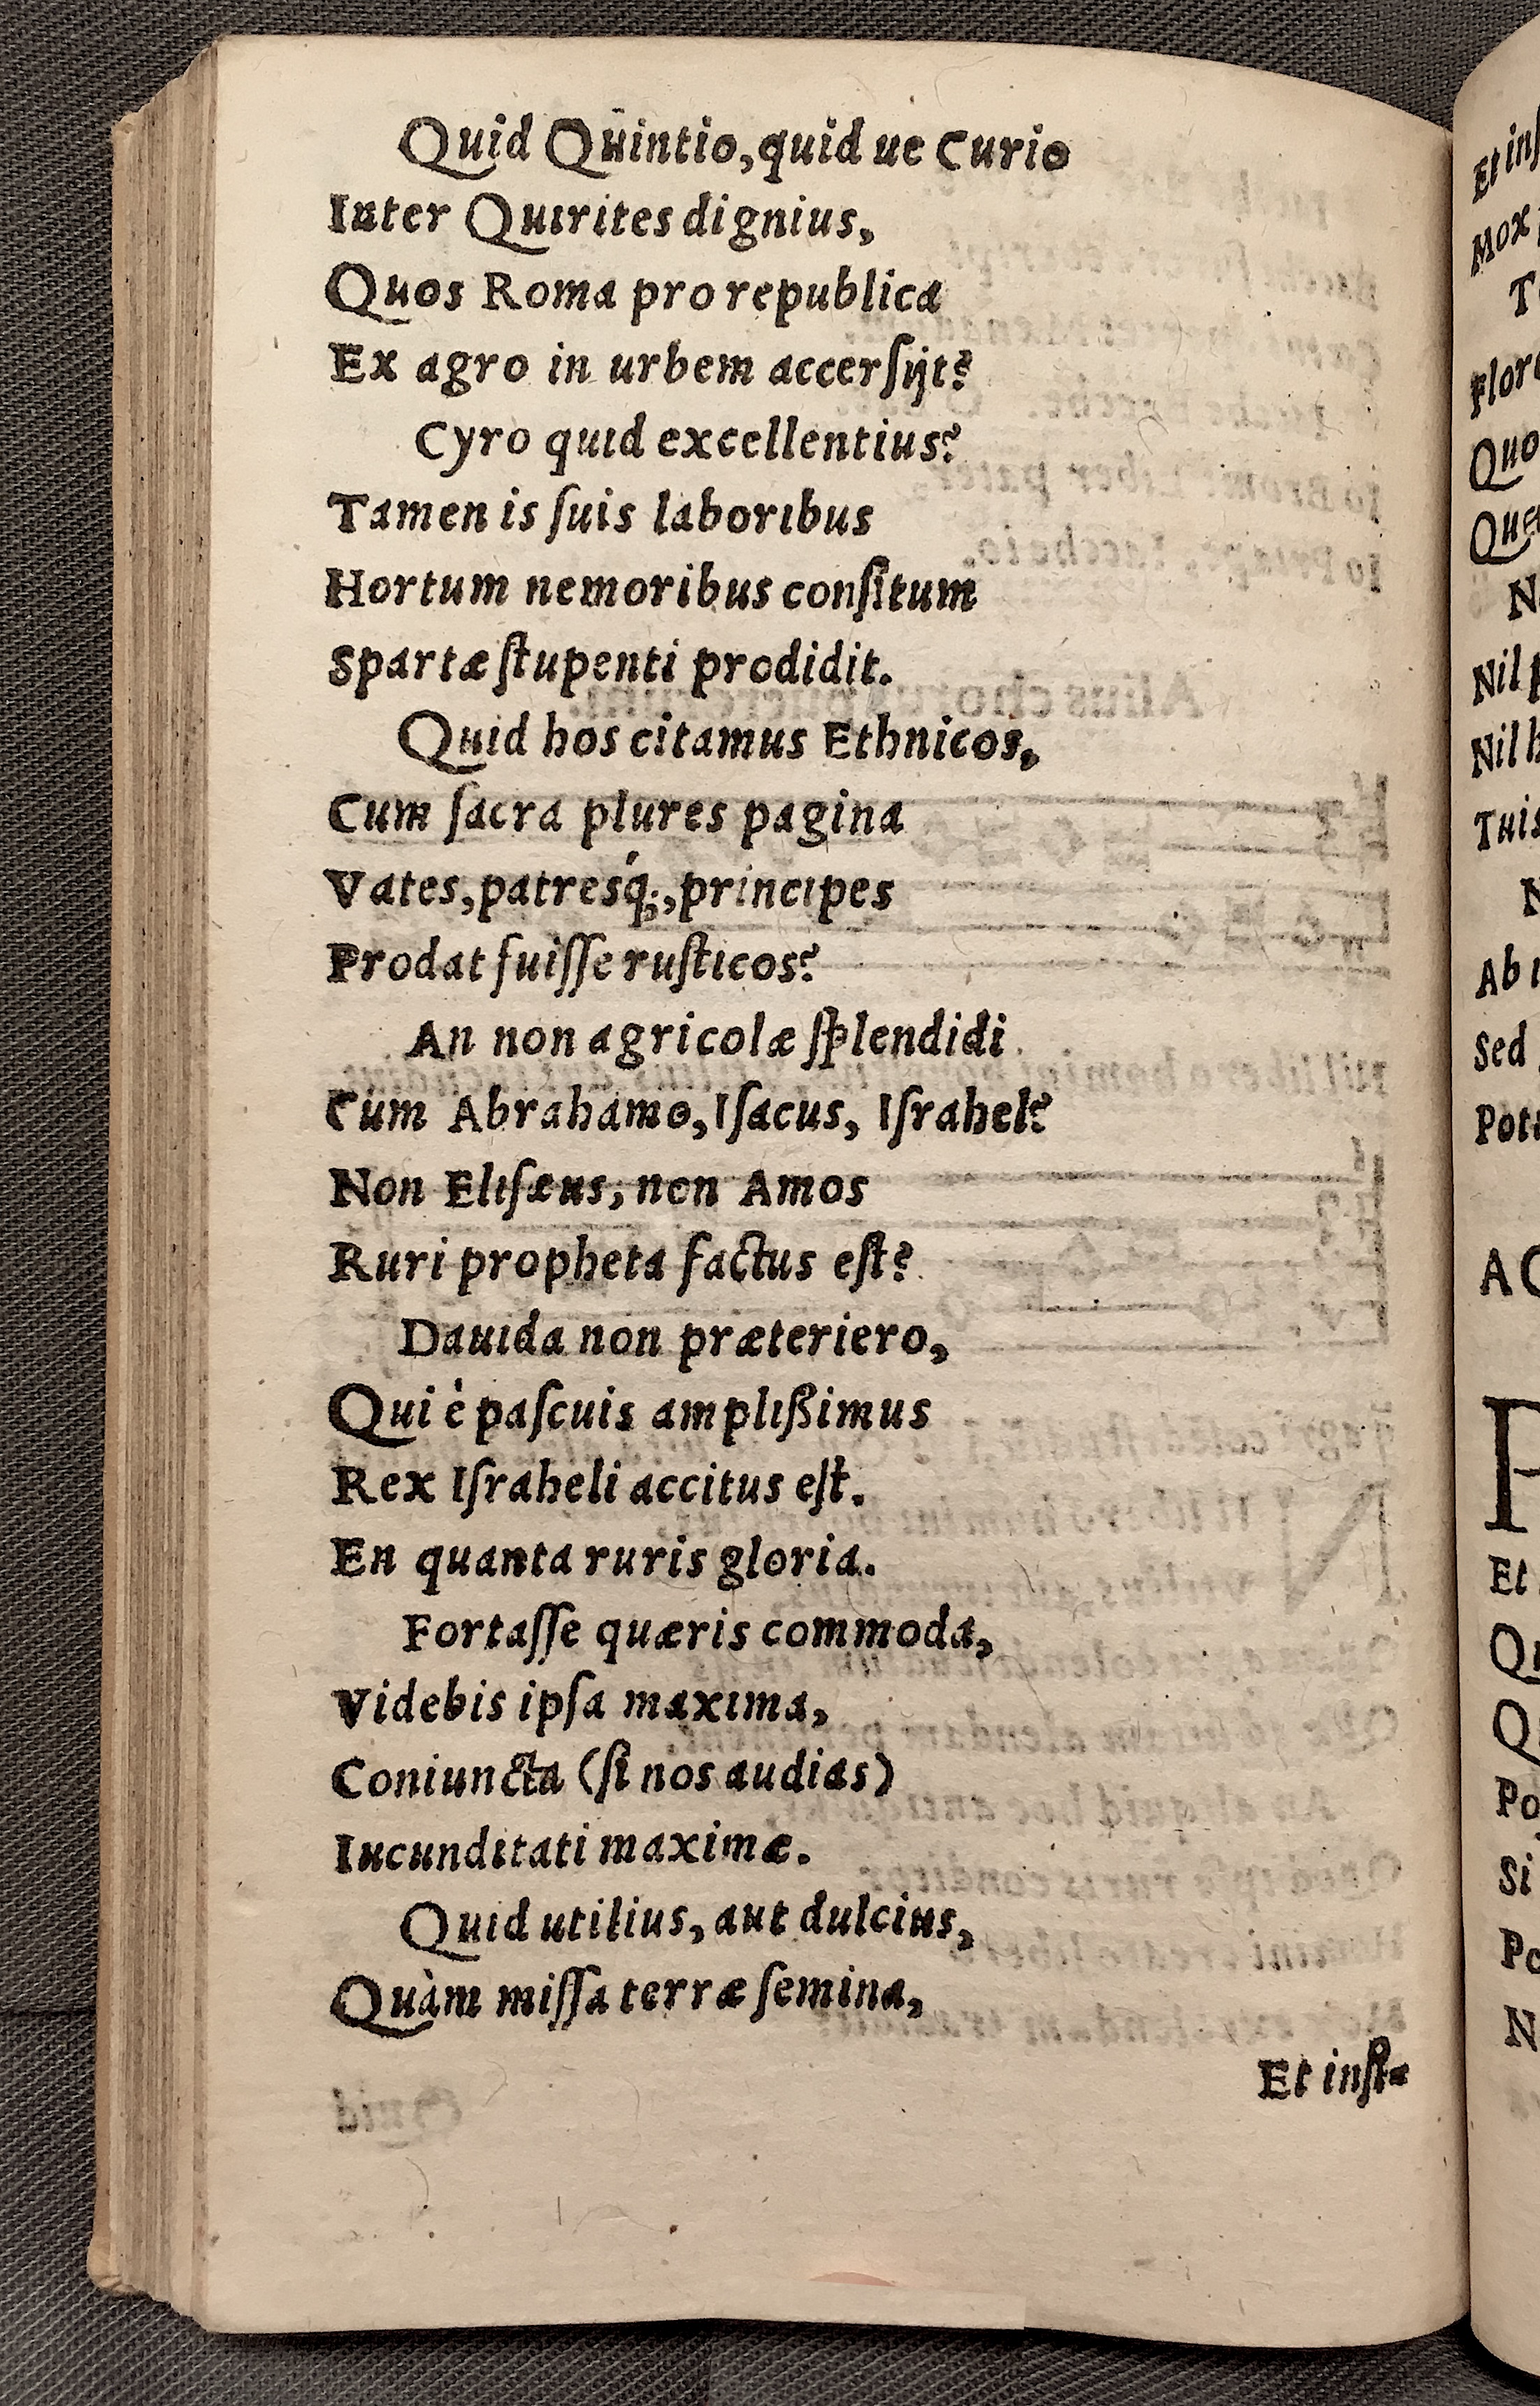 Quid Quintio, quid ue Curio
Inter Quirites dignius,
Quos Roma pro republica
Ex agro in urbem accerſijt?
Cyro quid excellentius?
Tamen is ſuis laboribus
Hortum nemoribus conſitum
Spartæ ſtupenti prodidit.
Quid hos citamus Ethnicos,
Cum ſacra plures pagina
Vates, patresq́;, principes
Prodat fuiſſe ruſticos?
An non agricolæ ſplendidi
Cum Abrahamo, Iſacus, Iſrahel?
Non Eliſæus, non Amos
Ruri propheta factus eſt?
Dauida non præteriero,
Qui è paſcuis amplißimus
Rex Iſraheli accitus eſt.
En quanta ruris gloria.
Fortaſſe quæris commoda,
Videbis ipſa maxima,
Coniuncta (ſi nos audias)
Iucunditati maximæ.
Quid utilius, aut dulcius,
Quàm miſſa terræ ſemina,
Et inſt-
Et inſ
Mox
Flor
Quo
Que
Nil
Nil
Tuis
Ab
Sed
Pot
Et
Si